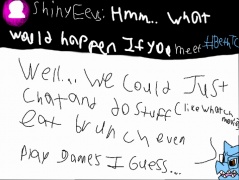 ShinyEeVi: Hmm.. what
would happen If you meet #BethTC
Well... We Could Just
Chat and do stuff (like watch movie
eat brunch even
Play Dames I Guess...